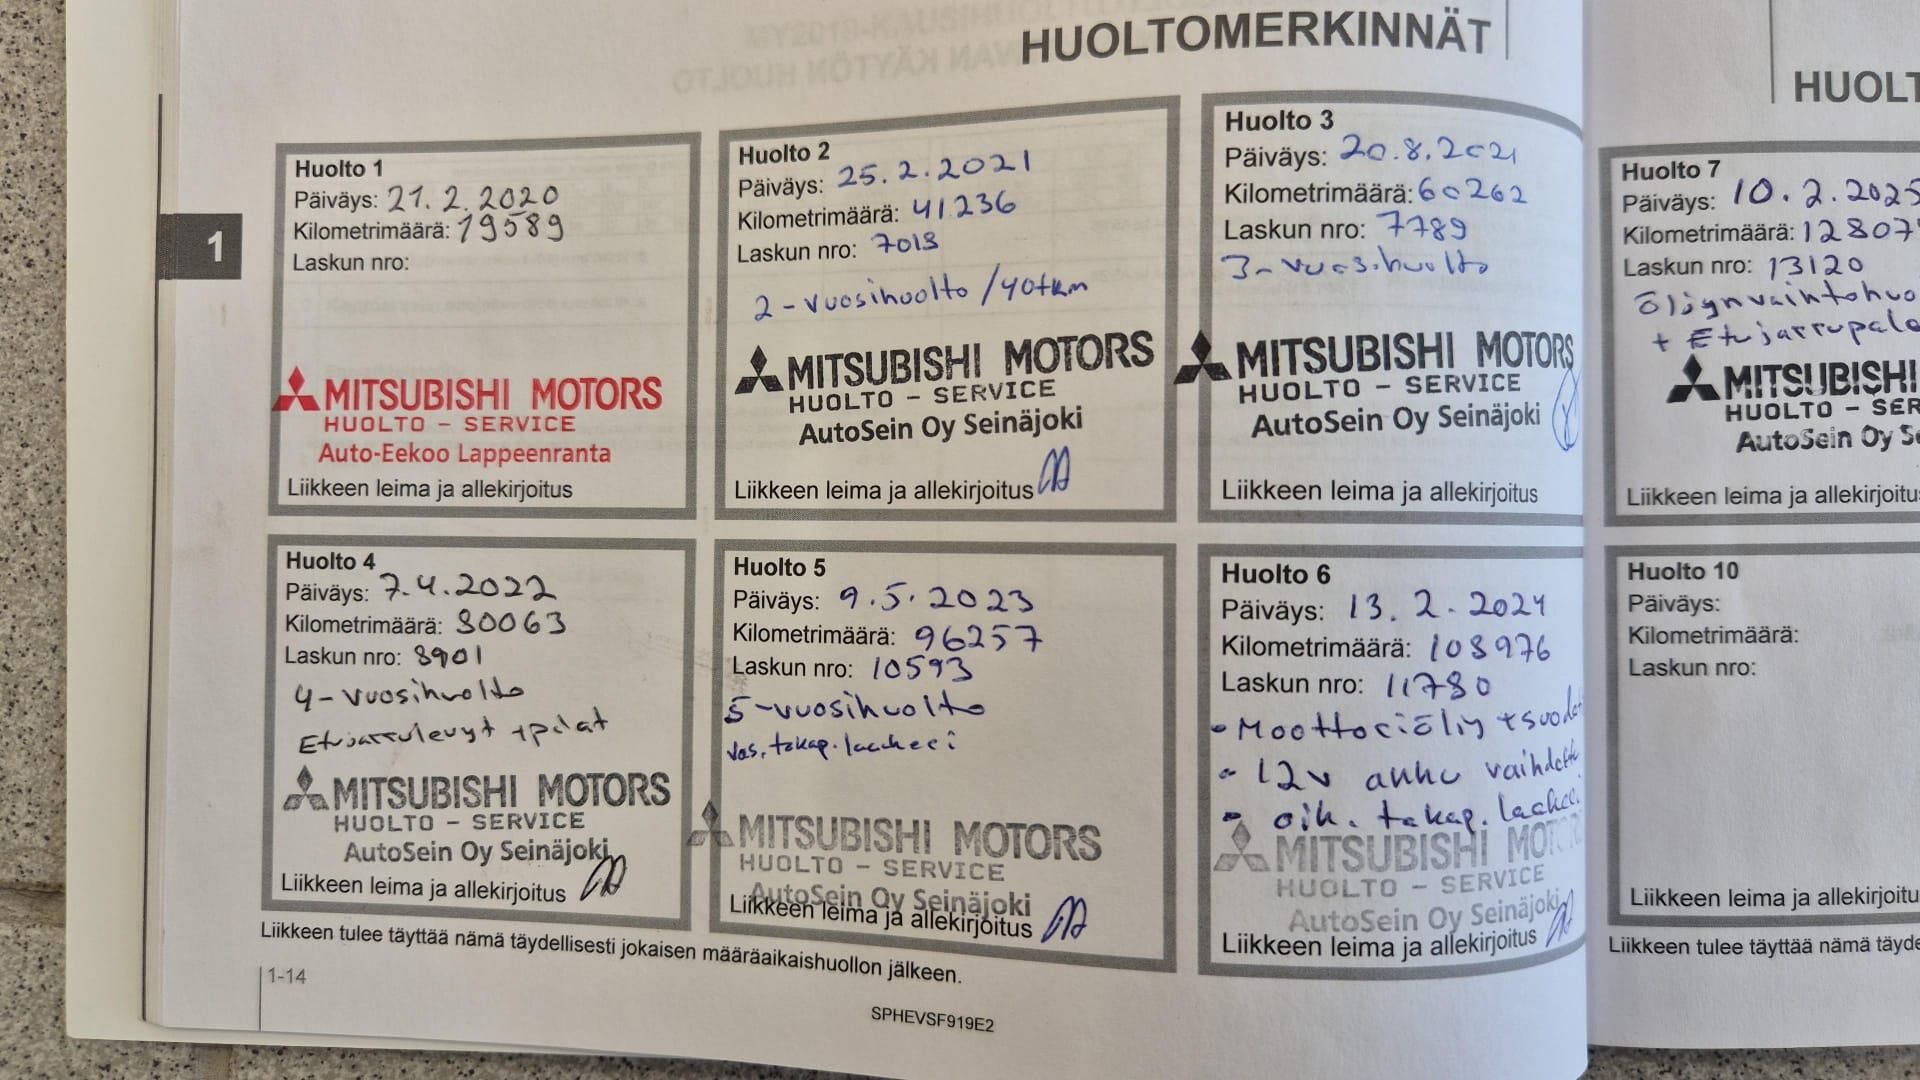 HUOLTOMERKINNÄT
1
Huolto 1
Päiväys: 21.2.2020
Kilometrimäärä: 19589
Laskun nro:
MITSUBISHI MOTORS
HUOLTO - SERVICE
Auto-Eekoo Lappeenranta
Liikkeen leima ja allekirjoitus
Huolto 2
Päiväys: 25.2.2021
Kilometrimäärä: 41236
Laskun nro: 7018
2-vuosihuolto/40tkm
MITSUBISHI MOTORS
HUOLTO - SERVICE
AutoSein Oy Seinäjoki
Liikkeen leima ja allekirjoitus
Huolto 3
Päiväys: 20.8.2021
Kilometrimäärä: 60262
Laskun nro: 7789
3-vuosihuolto
MITSUBISHI MOTORS
HUOLTO - SERVICE
AutoSein Oy Seinäjoki
Liikkeen leima ja allekirjoitus
Huolto 4
Päiväys: 7.4.2022
Kilometrimäärä: 80063
Laskun nro: 8901
4-vuosihuolto
Etujarrulevyt + palat
MITSUBISHI MOTORS
HUOLTO - SERVICE
AutoSein Oy Seinäjoki
Liikkeen leima ja allekirjoitus
Huolto 5
Päiväys: 9.5.2023
Kilometrimäärä: 96257
Laskun nro: 10593
5-vuosihuolto
vas. takap. laakeri
MITSUBISHI MOTORS
HUOLTO - SERVICE
AutoSein Oy Seinäjoki
Liikkeen leima ja allekirjoitus
Huolto 6
Päiväys: 13.2.2024
Kilometrimäärä: 108976
Laskun nro: 11780
- Moottoriöljy + suodat
- 12v akku vaihdettu
- oik. takap. laakeri
MITSUBISHI MOTORS
HUOLTO - SERVICE
AutoSein Oy Seinäjoki
Liikkeen leima ja allekirjoitus
Liikkeen tulee täyttää nämä täydellisesti jokaisen määräaikaishuollon jälkeen.
1-14
SPHEVSF919E2
HUOLT
Huolto 7
Päiväys: 10.2.2025
Kilometrimäärä: 12807
Laskun nro: 13120
Öljynvaihtohuo
+ Etujarrupala
MITSUBISHI
HUOLTO - SER
AutoSein Oy Se
Liikkeen leima ja allekirjoitu
Huolto 10
Päiväys:
Kilometrimäärä:
Laskun nro:
Liikkeen leima ja allekirjoitu
Liikkeen tulee täyttää nämä täyde